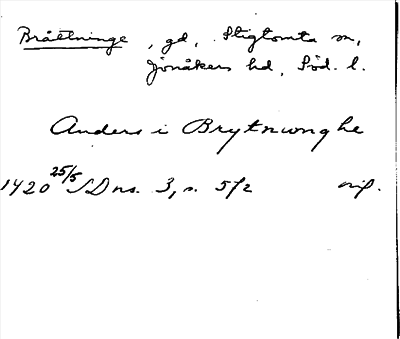 Bråttninge, gd, Stigtomta sn,
Jönåkers hd, Söd. l.
Anders i Brytnwnghe
1420 25/5 SDns. 3, s. 572 orig.